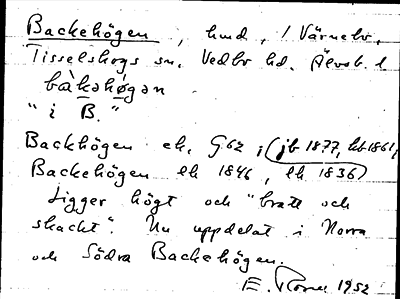 Backehögen, hmd, / Värnebo,
Tisselskogs sn. Vedbo hd. Älvsb. l
bàkahøgan
"i B."
Backhögen ek. G62, (jb 1877, hb 1861,
Backehögen ek 1846, lk 1836)
Ligger högt och "bratt och
skackt". Nu uppdelat i Norra
och Södra Backehögen.
E. 1952